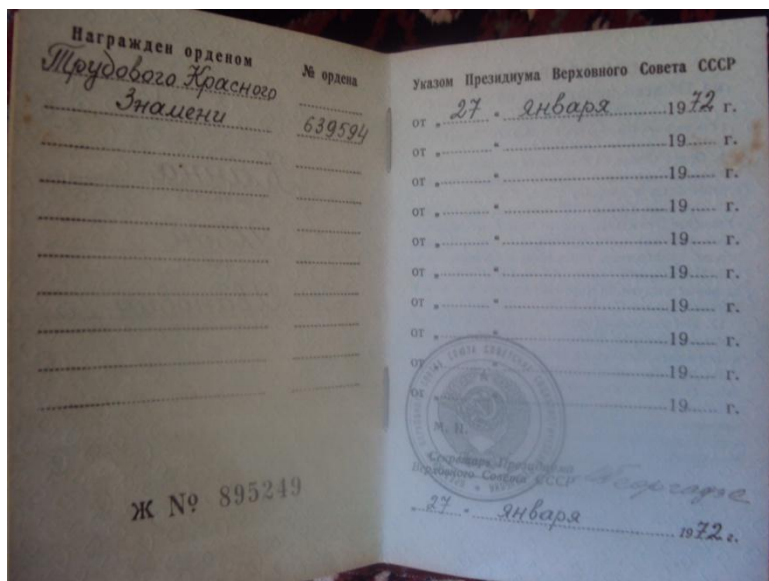 Награжден орденом
№ ордена
Трудового Красного
Знамени
639594
Ж № 895249
Указом Президиума Верховного Совета СССР
от „ 27 “ января 1972 г.
от „ “ 19 г.
от „ “ 19 г.
от „ “ 19 г.
от „ “ 19 г.
от „ “ 19 г.
от „ “ 19 г.
от „ “ 19 г.
от „ “ 19 г.
от „ “ 19 г.
М. П.
Секретарь Президиума
Верховного Совета СССР
Георгадзе
„ 27 “ января 1972 г.